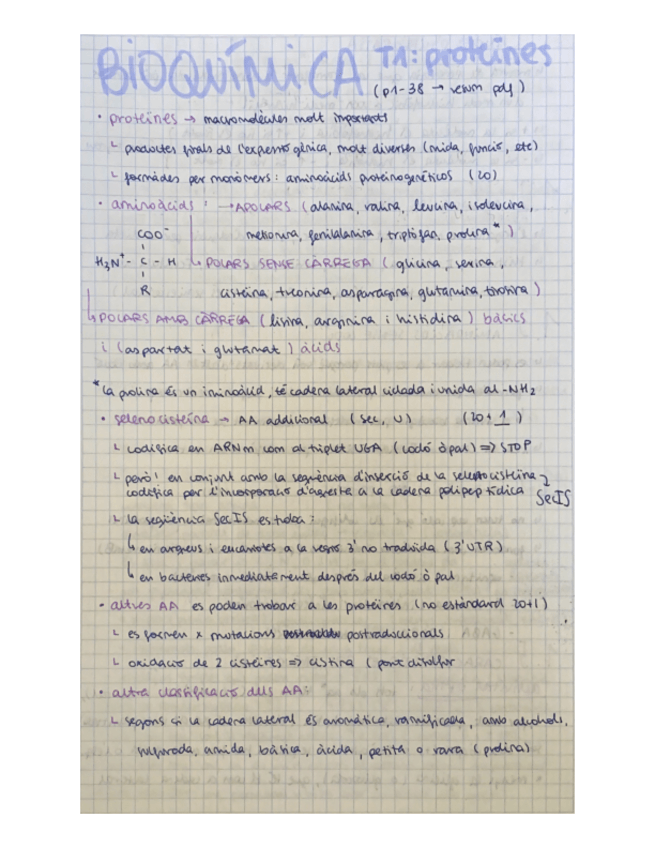 BIOQUÍMICA T1: proteïnes
(p1-38 → resum pdf)
· proteïnes → macromolècules molt importants
└ productes finals de l'expressió gènica, molt diverses (mida, funció, etc)
└ formades per monòmers: aminoàcids proteinogenètics (20)
· aminoàcids: → APOLARS (alanina, valina, leucina, isoleucina,
metionina, fenilalanina, triptòfan, prolina*)
COO⁻
H₃N⁺- C - H
R
↳ POLARS SENSE CÀRREGA (glicina, serina,
cisteïna, treonina, asparagina, glutamina, tirosina)
↳ POLARS AMB CÀRREGA (lisina, arginina i histidina) bàsics
i (aspartat i glutamat) àcids
*la prolina és un iminoàcid, té cadena lateral ciclada i unida al -NH₂
· selenocisteïna → AA addicional (sec, U) (20+1)
└ codifica en ARNm com al triplet UGA (codó òpal) => STOP
└ però! en conjunt amb la seqüència d'inserció de la selenocisteïna
codifica per l'incorporació d'aquesta a la cadena polipeptídica SecIS
└ la seqüència SecIS es troba:
↳ en arqueus i eucariotes a la regió 3' no traduïda (3'UTR)
↳ en bacteries immediatament després del codó òpal
· altres AA es poden trobar a les proteïnes (no estàndard 20+1)
└ es formen x mutacions postraduccionals
└ oxidació de 2 cisteïnes => cistina (pont disulfur
· altra classificació dels AA:
└ segons si la cadena lateral és aromàtica, ramificada, amb alcohols,
sulfurada, amida, bàsica, àcida, petita o rara (prolina)